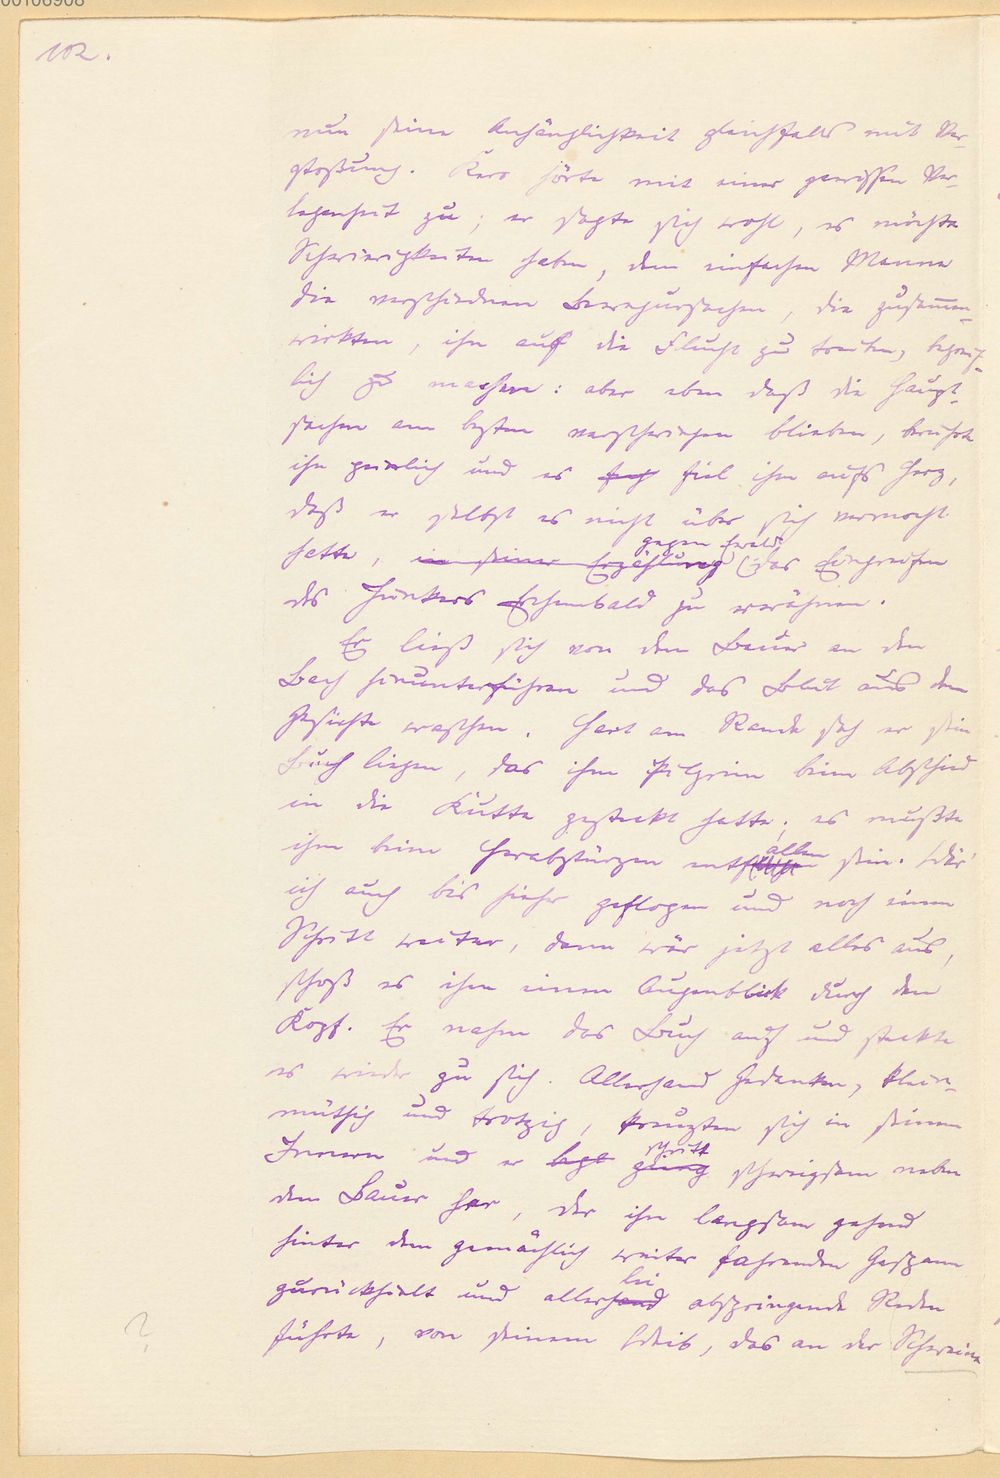 00106908
102.
nun seine Anhänglichkeit gleichfalls mit Ver-
stoßung. Kero hörte mit einer gewissen Ver-
legenheit zu; er sagte sich wohl, es möchte
Schwierigkeiten haben, dem einfachen Manne
die verschiednen Beweggursachen, die zusamen-
wirkten, ihn auf die Flucht zu treiben, begreif-
lich zu machen: aber eben daß die Haupt-
sachen am besten verschwiegen blieben, berührte
ihn peinlich und es fiel ihm aufs Herz,
daß er selbst es nicht über sich vermocht
hatte, in seiner Erzählung gegen Ewald das Eingreifen
des Junkers Erchembald zu erwähnen.
Er ließ sich von dem Bauer an den
Bach hinunterführen und das Blut aus dem
Gesichte waschen. Hart am Rande sah er sein
Buch liegen, das ihm Pilgrim beim Abschied
in die Kutte gesteckt hatte; es mußte
ihm beim Herabstürzen entfallen sein. Wär'
ich auch bis hieher geflogen und noch einen
Schritt weiter, dann wär jetzt alles aus,
schoß es ihm einen Augenblick durch den
Kopf. Er nahm das Buch auf und steckte
es wieder zu sich. Allerhand Gedanken, klein-
müthig und trotzig, kreuzten sich in seinem
Innern und er ging schritt schweigsam neben
dem Bauer her, der ihn langsam gehend
hinter dem gemächlich weiter fahrenden Gespann
zurückhielt und allerhand lei abspringende Reden
führte, von seinem Weib, das an der Schweine
?